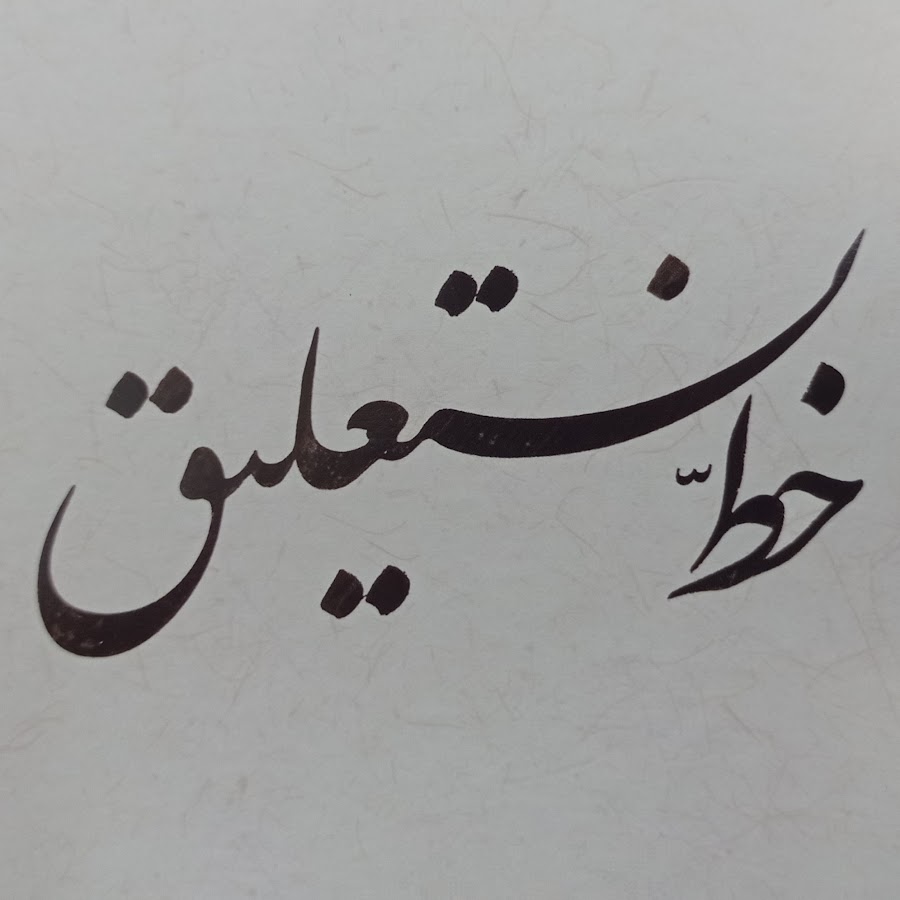 خطّ نستعلیق